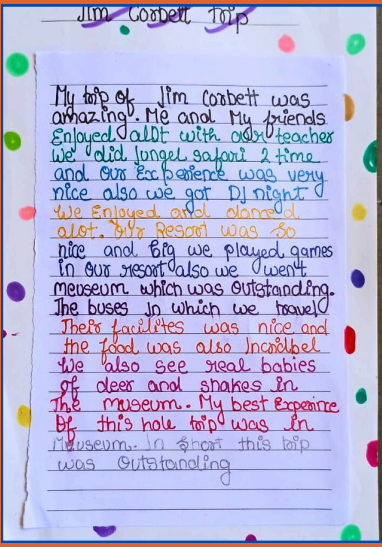 Jim Corbett Trip
My trip of Jim Corbett was
amazing. Me and My friends
Enjoyed alot with our teacher
We did Jungel safari 2 time
and our Experience was very
nice also we got DJ night
We Enjoyed and danced
alot. Our Resort was so
nice and big we played games
in our resort also we went
meuseum which was outstanding.
The buses in which we travel
Their facilites was nice and
the food was also Incridbel
We also see real babies
of deer and snakes in
The museum. My best Experince
Of this hole trip was in
Meuseum. In Short this trip
was Outstanding